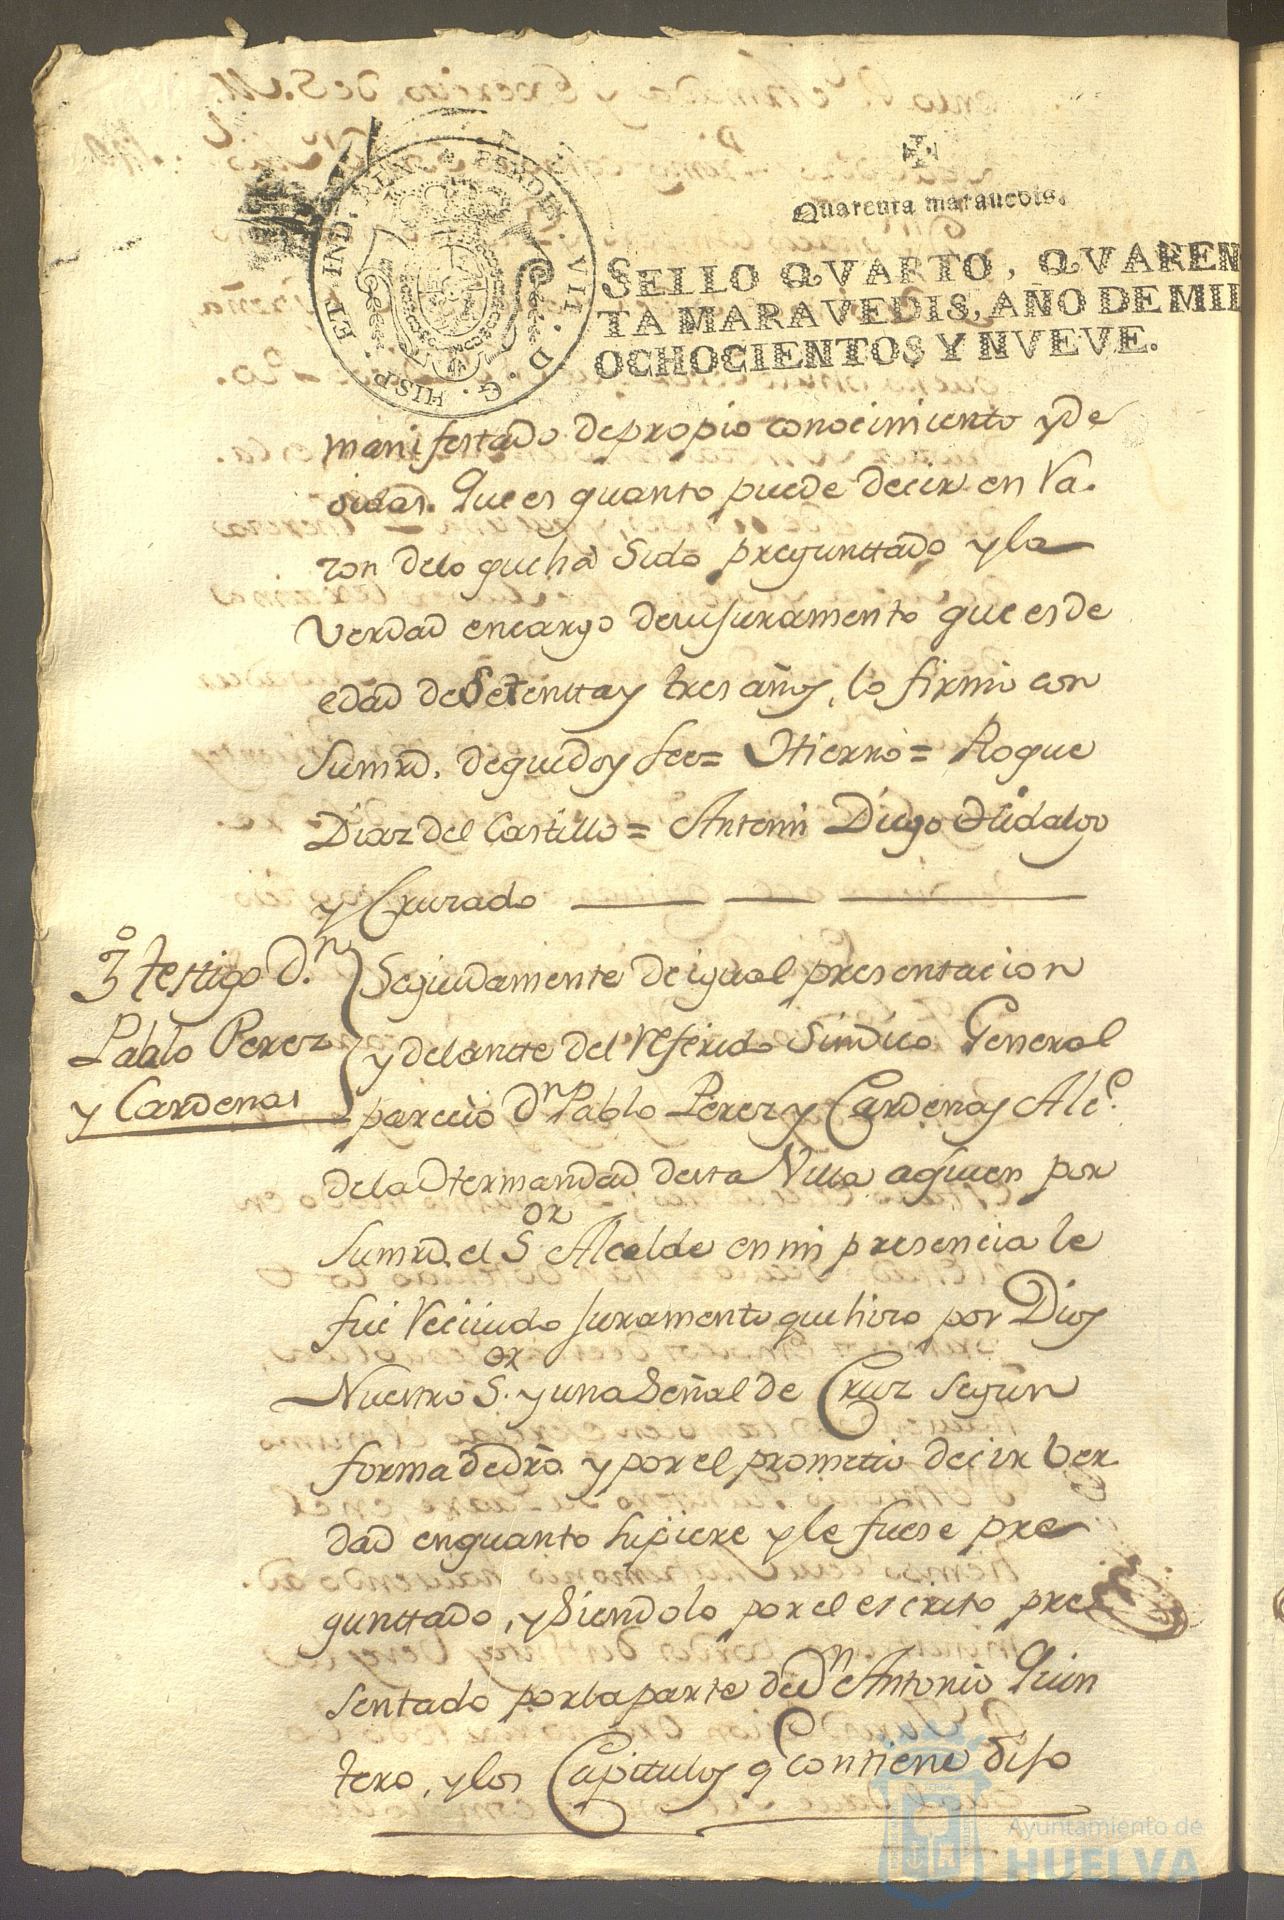 FERDIN. VII. D. G. HISP. ET IND. REX
Quarenta maravedis.
SELLO QVARTO, QVAREN
TA MARAVEDIS, AÑO DE MIL
OCHOCIENTOS Y NVEVE.
manifestado de propio conocimiento y de
oidas. Que es quanto puede decir en Ra.
zon delo que há Sido preguntado y la
Verdad encargo de su juramento que es de
edad de Setenta y tres años, lo firmó con
Sumrd. de que doy fee = Hierro = Roque
Diaz del Castillo = Antemi Diego Hidalgo
y Cruzado
3º testigo D.n
Pablo Perez
y Cardenas
Seguidamente de igual presentacion
y delante del Referido Sindico General
parecio Dn Pablo Perez y Cardenas Alce.
dela Hermandad desta Villa aquien por
Sumrd. el Sor Alcalde en mi presencia le
fue Recivido juramento que hizo por Dios
Nuestro Sor. y una Señal de Cruz segun
forma de dro. y por el prometio decir Ver
dad en quanto supiere y le fuese pre
guntado, y Siendolo por el escrito pre
sentado por la parte de Dn Antonio Quin
tero, y los Capitulos q contiene dijo
Ayuntamiento de
HUELVA